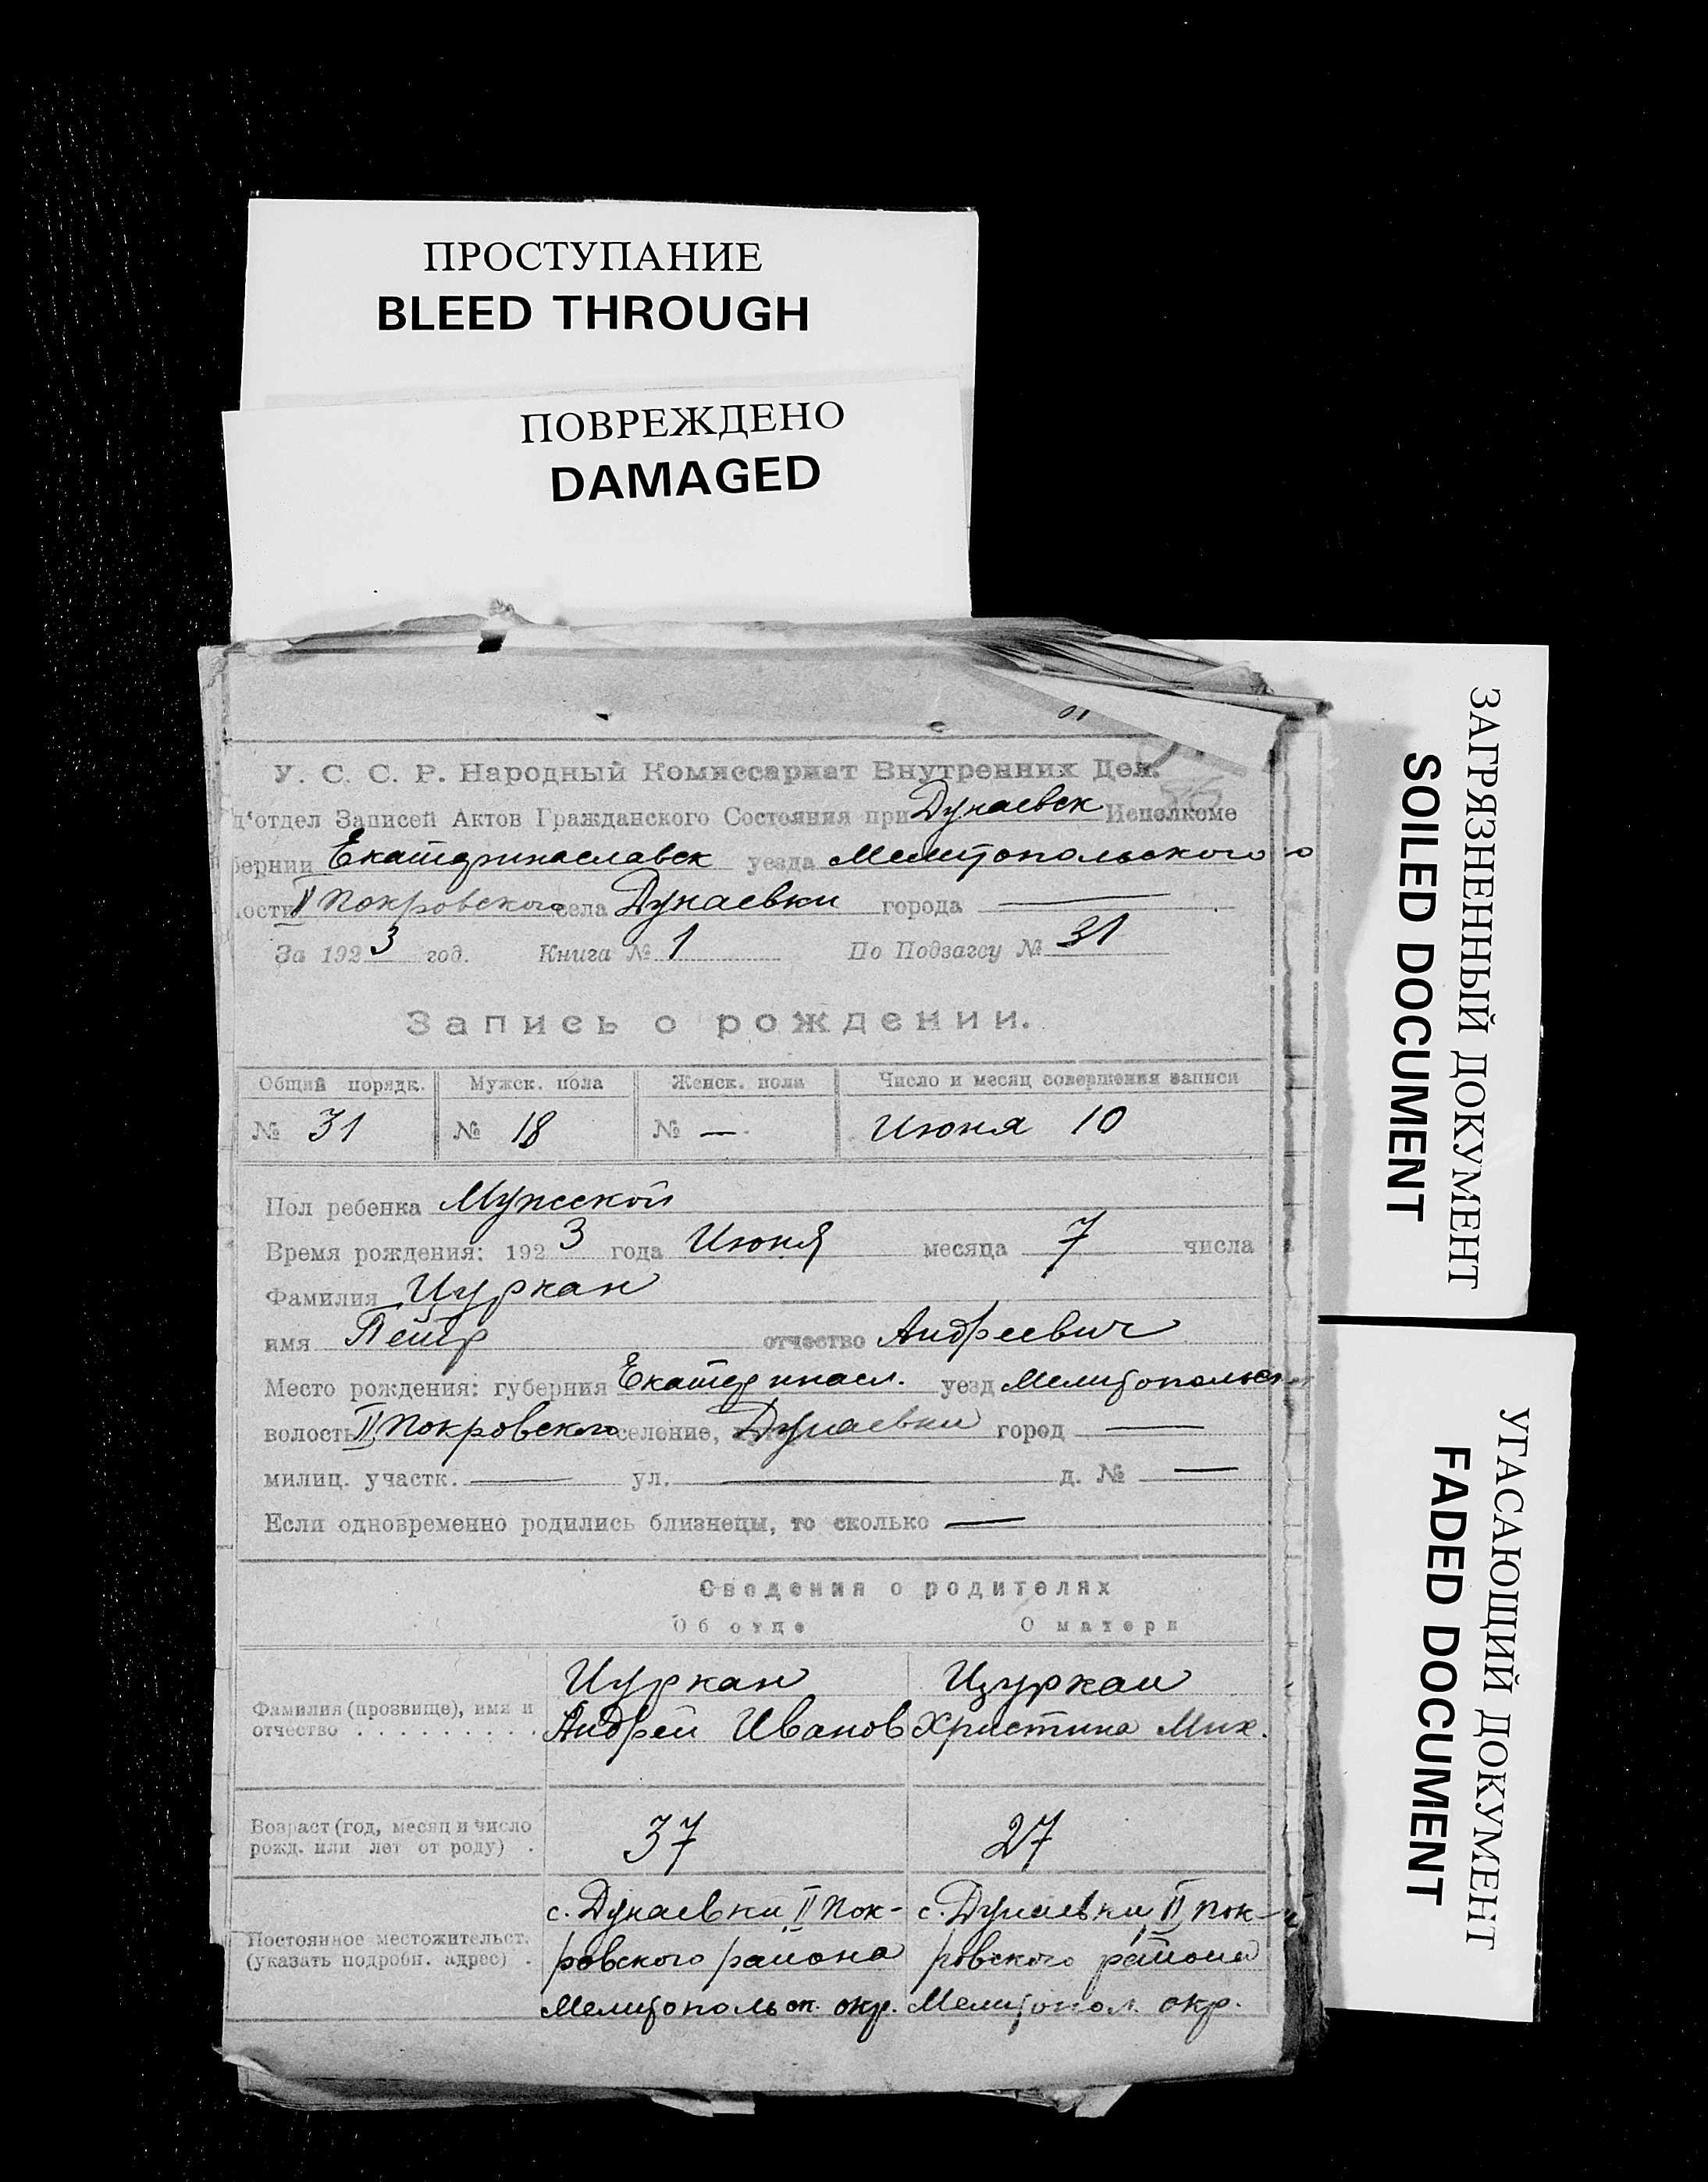 ПРОСТУПАНИЕ
BLEED THROUGH
ПОВРЕЖДЕНО
DAMAGED
ЗАГРЯЗНЕННЫЙ ДОКУМЕНТ
SOILED DOCUMENT
УГАСАЮЩИЙ ДОКУМЕНТ
FADED DOCUMENT
У. С. С. Р. Народный Комиссариат Внутренних Дел.
д'отдел Записей Актов Гражданского Состояния при Дунаевск Исполкоме
бернии Екатеринославск уезда Мелитопольского
ости II Покровского села Дунаевки города —
За 1923 год. Книга № 1 По Подзагсу № 31
Запись о рождении.
Общий порядк. Мужск. пола Женск. пола Число и месяц совершения записи
№ 31 № 18 № — Июня 10
Пол ребенка Мужской
Время рождения: 1923 года Июня месяца 7 числа
Фамилия Цуркан
имя Петр отчество Андреевич
Место рождения: губерния Екатеринасл. уезд Мелитопольск
волость II Покровского селение, Дунаевки город —
милиц. участк. — ул. — д. № —
Если одновременно родились близнецы, то сколько —
Сведения о родителях
Об отце О матери
Фамилия (прозвище), имя и отчество . . . . . . . . .
Цуркан
Андрей Иванов
Цуркан
Христина Мих.
Возраст (год, месяц и число рожд. или лет от роду) .
37 27
Постоянное местожительст. (указать подробн. адрес) .
с. Дунаевки II Пок-
ровского района
Мелитопольск. окр.
с. Дунаевки II Пок-
ровского района
Мелитопол. окр.